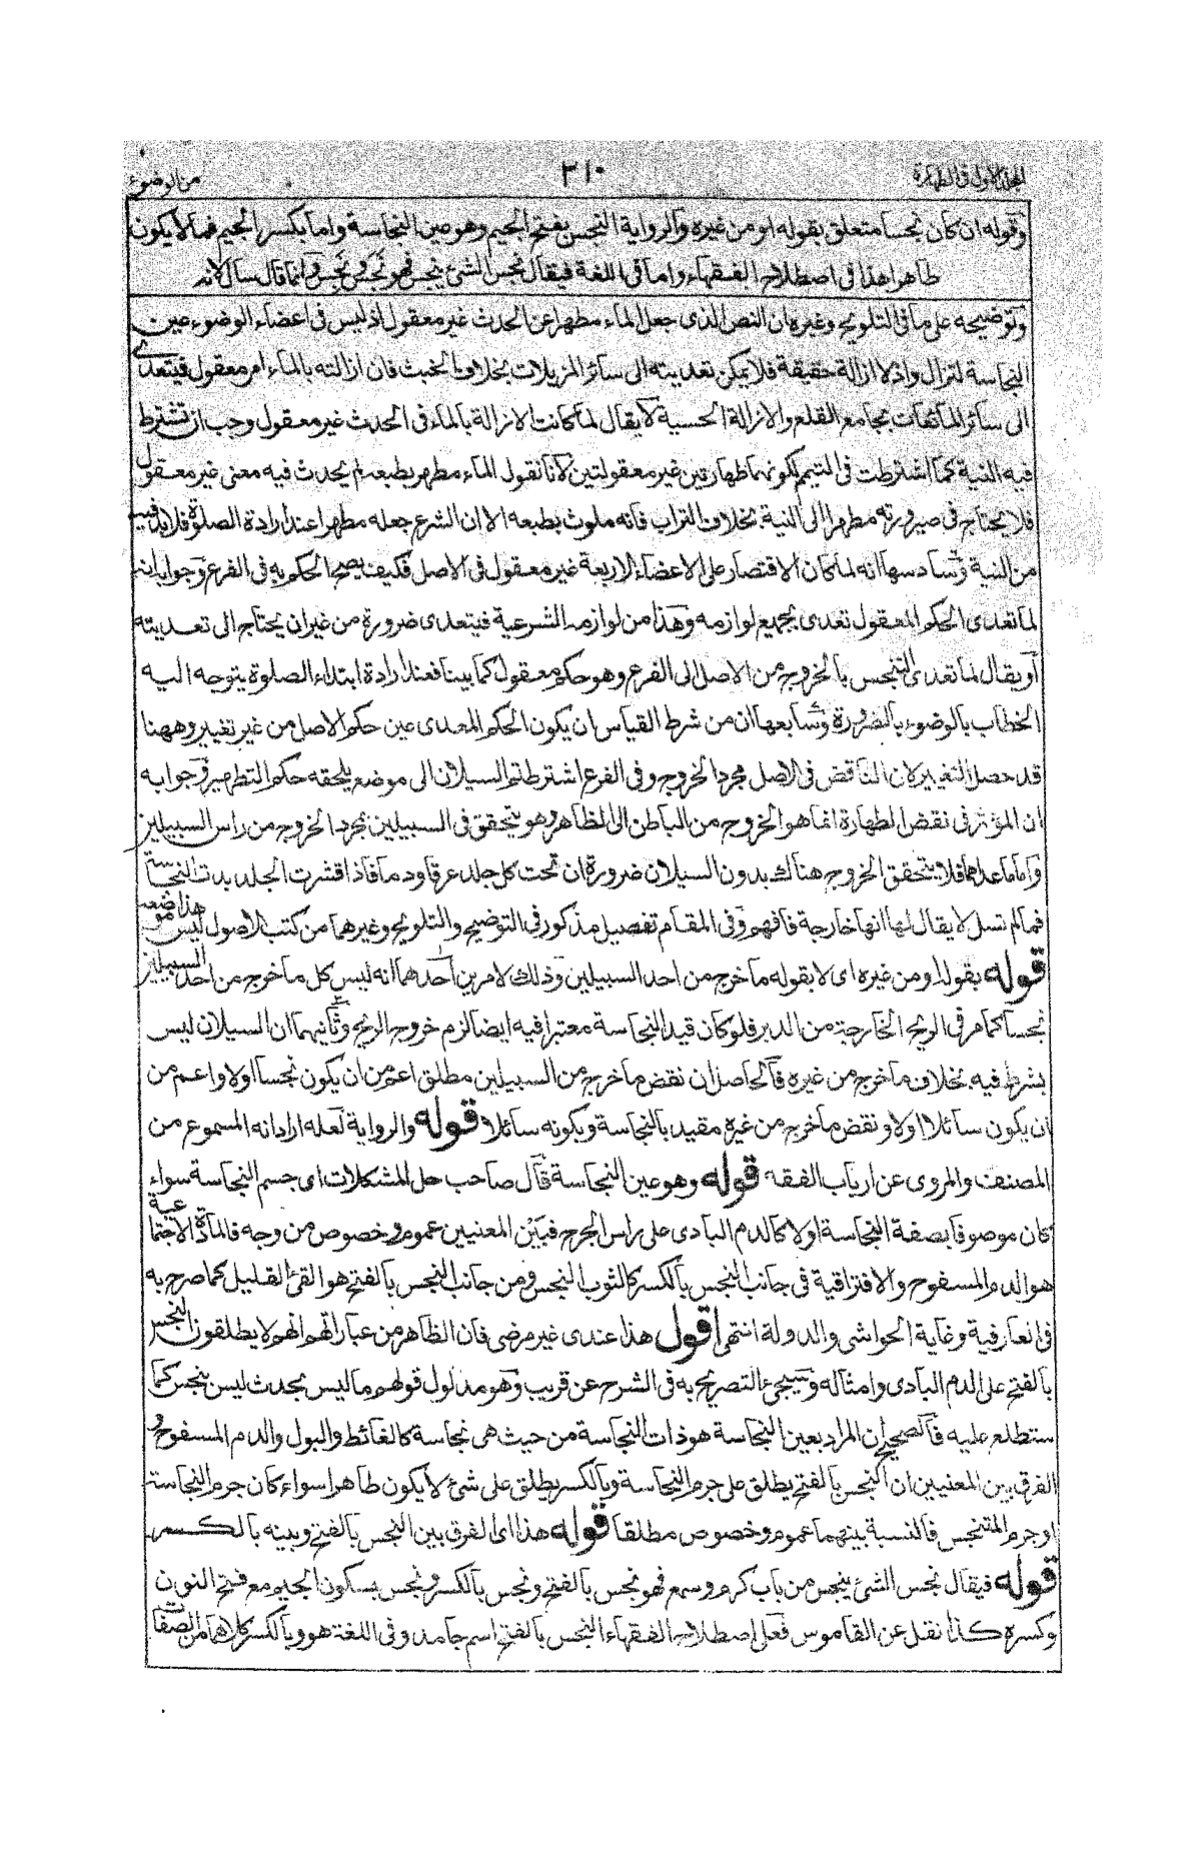 المجلد الاول فى الطهارة
٣١٠
من الوضوء
وقوله ان كان نجسا متعلق بقوله او من غيره والرواية النجس بفتح الجيم وهو عين النجاسة واما بكسر الجيم فما لا يكون
طاهرا هذا فى اصطلاح الفقهاء واما فى اللغة فيقال نجس الشئ ينجس فهو نجِس ونجَس وانما قال سال لانه
وتوضيحه على ما فى التلويح وغيره ان النص الذى جعل الماء مطهرا عن الحدث غير معقول اذ ليس فى اعضاء الوضوء عين
النجاسة لتزال واذ لا ازالة حقيقة فلا يمكن تعديته الى سائر المزيلات بخلاف الخبث فان ازالته بالماء امر معقول فيتعدى
الى سائر المائعات بجامع القلع والازالة الحسية لا يقال لما كانت الازالة بالماء فى الحدث غير معقول وجب ان تشترط
فيه النية كما اشترطت فى التيمم لكونهما طهارتين غير معقولتين لانا نقول الماء مطهر بطبعه لم يحدث فيه معنى غير معقول
فلا يحتاج فى صيرورته مطهرا الى النية بخلاف التراب فانه ملوث بطبعه الا ان الشرع جعله مطهرا عند ارادة الصلوة فلابد فيه
من النية وسادسها انه لما كان الاقتصار على الاعضاء الاربعة غير معقول فى الاصل فكيف يصح الحكم به فى الفرع وجوابه انه
لما تعدى الحكم المعقول تعدى بجميع لوازمه وهذا من لوازمه الشرعية فيتعدى ضرورة من غير ان يحتاج الى تعديته
او يقال لما تعدى التنجس بالخروج من الاصل الى الفرع وهو حكم معقول كما بينا فعند ارادة ابتداء الصلوة يتوجه اليه
الخطاب بالوضوء بالضرورة وسابعها ان من شرط القياس ان يكون الحكم المعدى عين حكم الاصل من غير تغيير وههنا
قد حصل التغيير لان الناقض فى الاصل مجرد الخروج وفى الفرع اشترطتم السيلان الى موضع يلحقه حكم التطهير وجوابه
ان المؤثر فى نقض الطهارة انما هو الخروج من الباطن الى الظاهر وهو يتحقق فى السبيلين بمجرد الخروج من راس السبيلين
واما ما عداهما فلا يتحقق الخروج هناك بدون السيلان ضرورة ان تحت كل جلد عرقا ودما فاذا قشرت الجلد بدت النجاسة
فما لم تسل لا يقال لها انها خارجة فافهم وفى المقام تفصيل مذكور فى التوضيح والتلويح وغيرهما من كتب الاصول ليس هذا موضعه
قوله بقوله او من غيره اى لا بقوله ما خرج من احد السبيلين وذلك لامرين احدهما انه ليس كل ما خرج من احد السبيلين
نجسا كما مر فى الريح الخارجة من الدبر فلو كان قيد النجاسة معتبرا فيه ايضا لزم خروج الريح وثانيهما ان السيلان ليس
بشرط فيه بخلاف ما خرج من غيره فالحاصل ان نقض ما خرج من السبيلين مطلق اعم من ان يكون نجسا اولا واعم من
ان يكون سائلا اولا ونقض ما خرج من غيره مقيد بالنجاسة وبكونه سائلا قوله والرواية لعله اراد انه المسموع من
المصنف والمروى عن ارباب الفقه قوله وهو عين النجاسة قال صاحب حل المشكلات اى جسم النجاسة سواء
كان موصوفا بصفة النجاسة اولا كالدم البادى على راس الجرح فبين المعنيين عموم وخصوص من وجه فالمادة الاجتماعية
هو الدم المسفوح والافتراقية فى جانب النجس بالكسر كالثوب النجس ومن جانب النجس بالفتح هو القئ القليل كما صرح به
فى العارفية وغاية الحواشى والدولة انتهى اقول هذا عندى غير مرضى فان الظاهر من عباراتهم انهم لا يطلقون النجس
بالفتح على الدم البادى وامثاله وسيجئ التصريح به فى الشرح عن قريب وهو مدلول قولهم ما ليس بحدث ليس بنجس كما
ستطلع عليه فالصحيح ان المراد بعين النجاسة هو ذات النجاسة من حيث هى نجاسة كالغائط والبول والدم المسفوح و
الفرق بين المعنيين ان النجس بالفتح يطلق على جرم النجاسة وبالكسر يطلق على شئ لا يكون طاهرا سواء كان جرم النجاسة
او جرم المتنجس فالنسبة بينهما عموم وخصوص مطلقا قوله هذا اى الفرق بين النجس بالفتح وبينه بالكسر
قوله فيقال نجس الشئ ينجس من باب كرم وسمع فهو نجس بالفتح ونجس بالكسر ونجس بسكون الجيم مع فتح النون
وكسره كذا نقل عن القاموس فعلى اصطلاح الفقهاء النجس بالفتح اسم جامد وفى اللغة هو وبالكسر كلاهما من الصفات